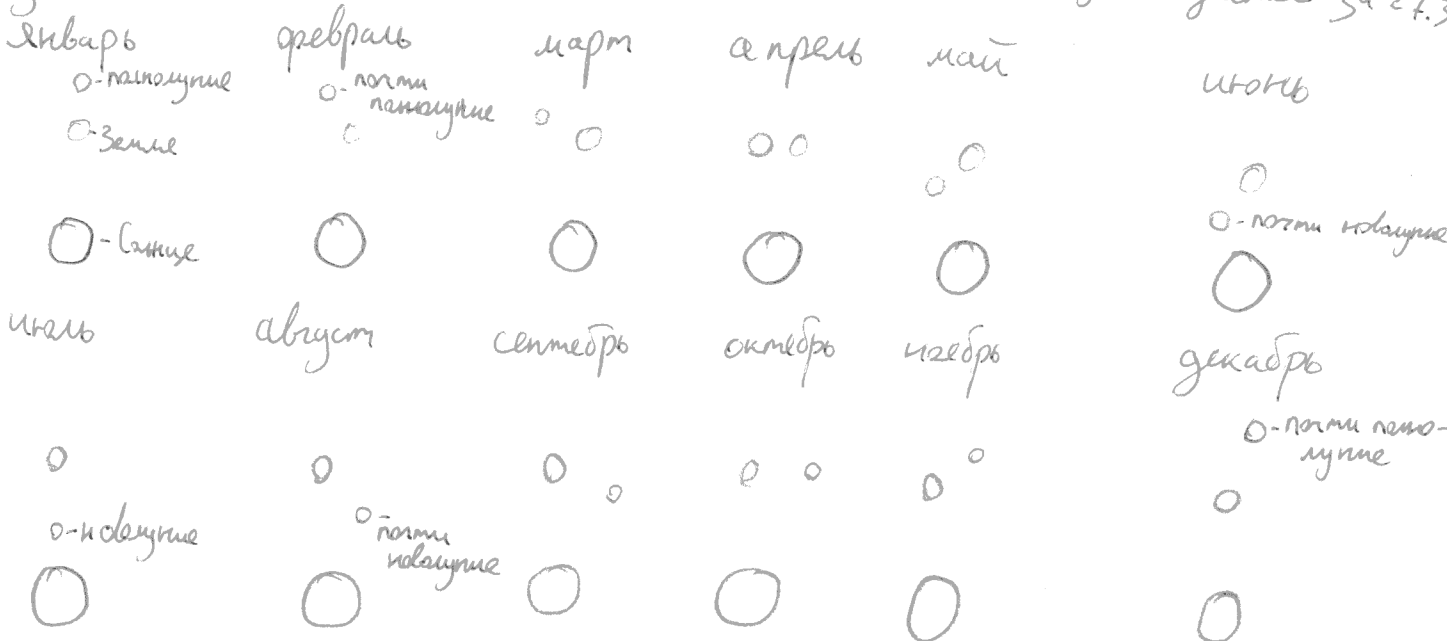 январь февраль март апрель май июнь
-полнолуние
-почти
полнолуние
-Земля
-Солнце
-почти новолуние
июль август сентябрь октябрь ноябрь декабрь
-почти полно-
луние
-новолуние
почти
новолуние